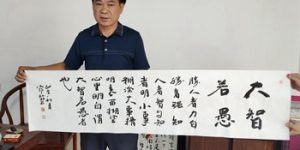 大智
若愚
勝人者力自
勝者强知
人者智自知
者明小事
糊涂大事精
明
心里明白谓
大智若愚者
也